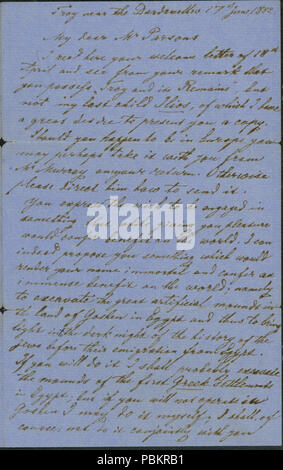 Troy near the Dardanelles 17th June 1882
My dear Mr Parsons
I rec'd here your welcome letter of 18th
April and see from your remark that
you possess Troy and its Remains but
not my last child Ilios, of which I have
a great desire to present you a copy.
Should you happen to be in Europe you
may perhaps take it with you from
Mr Murray on your return. Otherwise
please direct him how to send it.
You express the wish to be engaged in
something while giving you pleasure
would confer benefit on the world. I can
indeed propose you something which would
render your name immortal and confer an
immense benefit on the world; namely
to excavate the great artificial mounds in
the land of Goshen in Egypt and thus to bring
light in the dark night of the history of the
Jews before their emigration from Egypt.
If you will do it I shall probably excavate
the mounds of the first Greek Settlements
in Egypt; but if you will not operate in
Goshen I may do it myself; I shall of
course do it conjointly with you
alamy
Image ID: PBKRB1
www.alamy.com